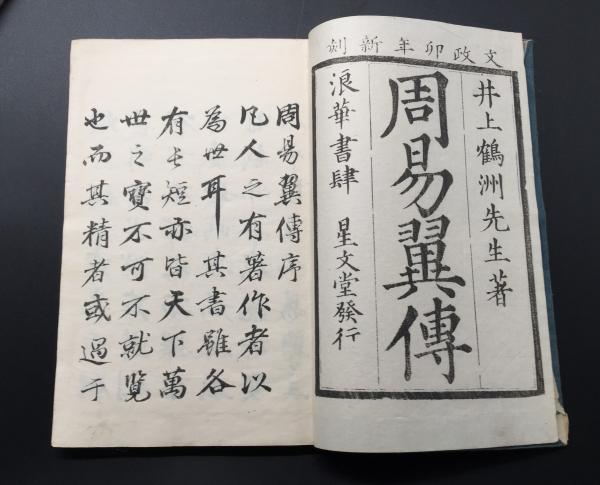 文政卯年新刻
井上鶴洲先生著
周易翼傳
浪華書肆 星文堂發行
周易翼傳序
凡人之有著作者以
為世耳其書雖各
有長短亦皆天下萬
世之寶不可不就覽
也而其精者或過于